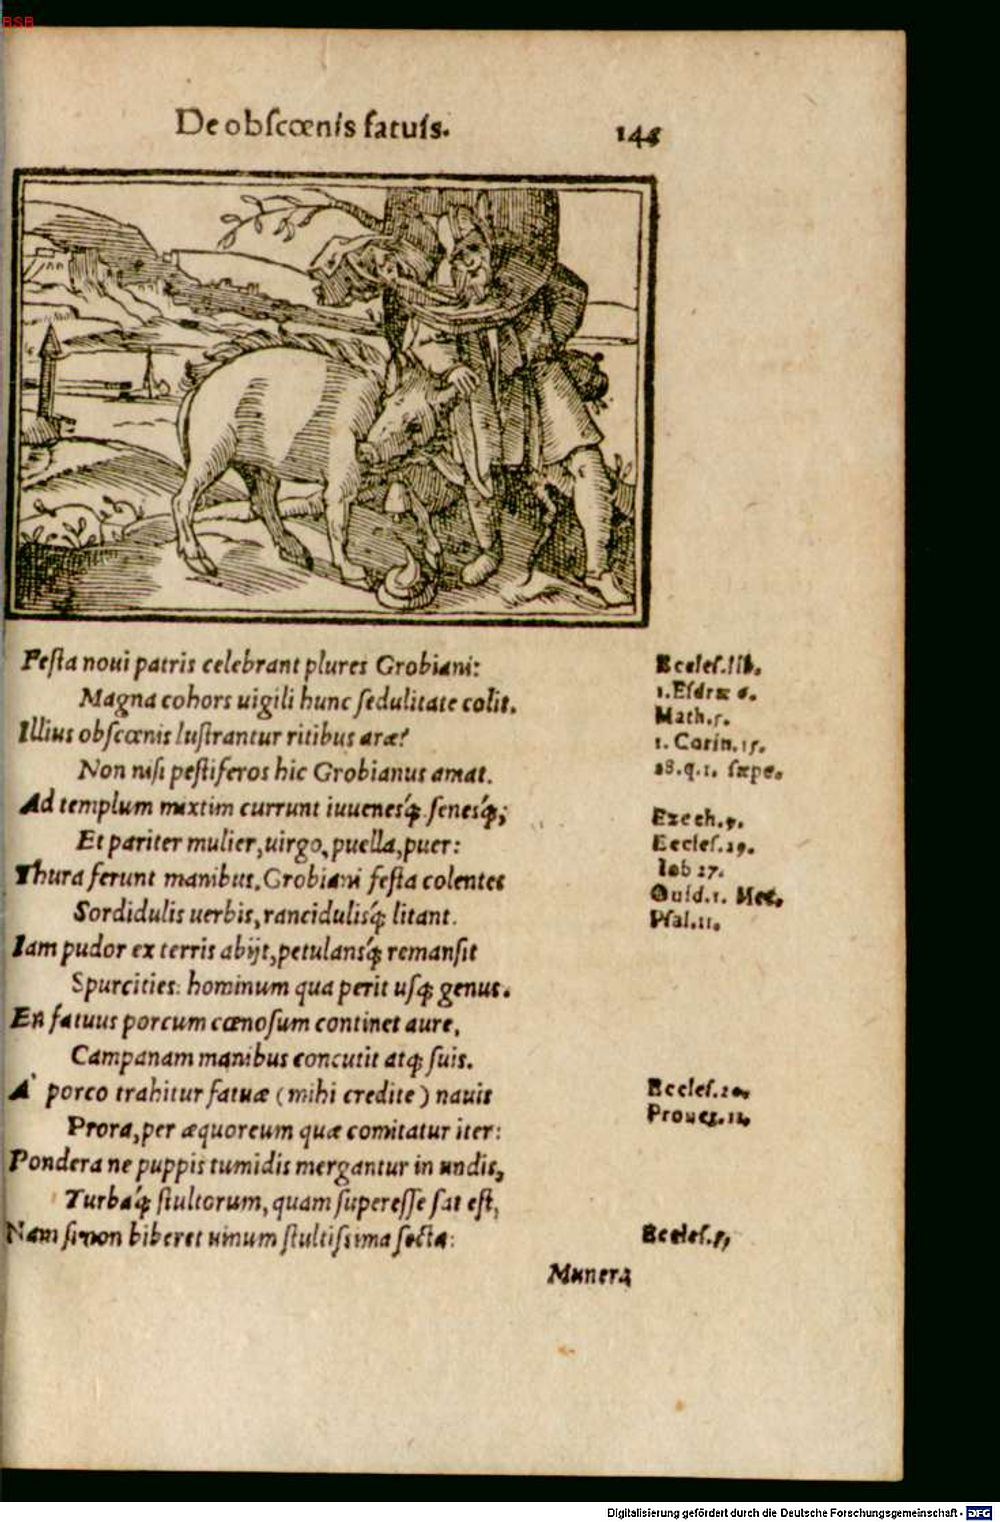 BSB
De obſcœnis fatuis.
144
Feſta noui patris celebrant plures Grobiani: Eccleſ.lib.
Magna cohors uigili hunc ſedulitate colit. 1.Eſdræ 6.
Illius obſcœnis luſtrantur ritibus aræ? Math.5.
Non niſi peſtiferos hic Grobianus amat. 1. Corin.15.
28.q.1. ſæpe.
Ad templum mixtim currunt iuueneſq́; ſeneſq́;; Ezech.9.
Et pariter mulier, uirgo, puella, puer: Eccleſ.19.
Thura ferunt manibus, Grobiani feſta colentes Iob 27.
Sordidulis uerbis, rancidulisq́; litant. Ouid.1. Met.
Iam pudor ex terris abijt, petulansq́; remanſit Pſal.11.
Spurcities: hominum qua perit uſq; genus.
En fatuus porcum cœnoſum continet aure,
Campanam manibus concutit atq; ſuis.
A' porco trahitur fatuæ (mihi credite) nauis Eccleſ.20.
Prora, per æquoreum quæ comitatur iter: Prouer.12.
Pondera ne puppis tumidis mergantur in undis,
Turbaq́; ſtultorum, quam ſupereſſe ſat eſt,
Nam ſi non biberet uinum ſtultiſsima ſecta: Eccleſ.
Munera
Digitalisierung gefördert durch die Deutsche Forschungsgemeinschaft - DFG